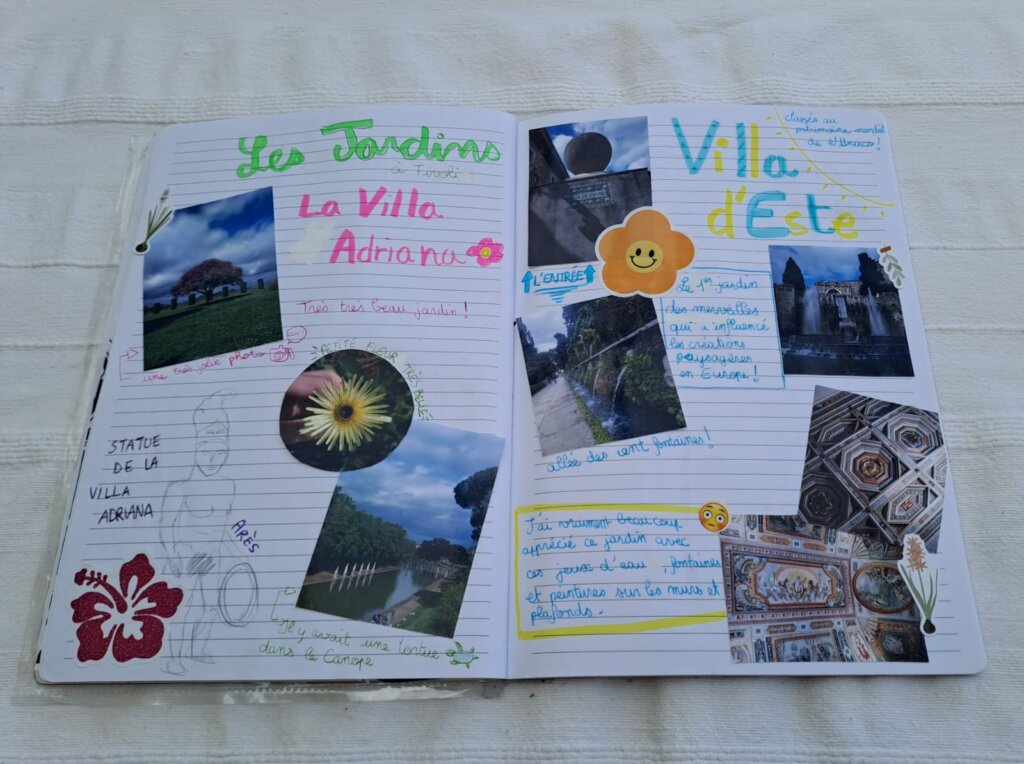 Les Jardins
à Tivoli
La Villa
Adriana
Très très beau jardin !
une très jolie photo
PETITE FLEUR TRÈS BELLE
STATUE
DE LA
VILLA
ADRIANA
ARÈS
Il y avait une tortue
dans le Canope
Villa
d'Este
classés au
patrimoine mondial
de l'Unesco !
L'ENTRÉE
Le 1er jardin
des merveilles
qui a influencé
les créations
paysagères
en Europe !
allée des cent fontaines !
J'ai vraiment beaucoup
apprécié ce jardin avec
ces jeux d'eau, fontaines
et peintures sur les murs et
plafonds.